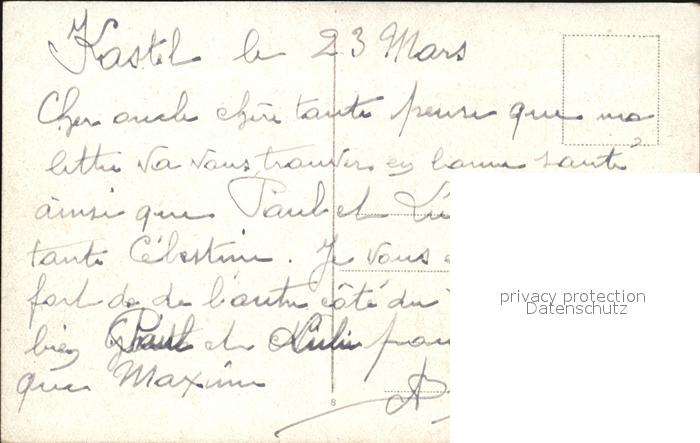 Kastel le 23 Mars
Cher oncle chère tante pense que ma
lettre va vous trouver en bonne santé
ainsi que Paul et
tante Célestine. Je vous
fort de de l'autre côté du
bien Paul et Lulu
que Maxime
privacy protection
Datenschutz
8